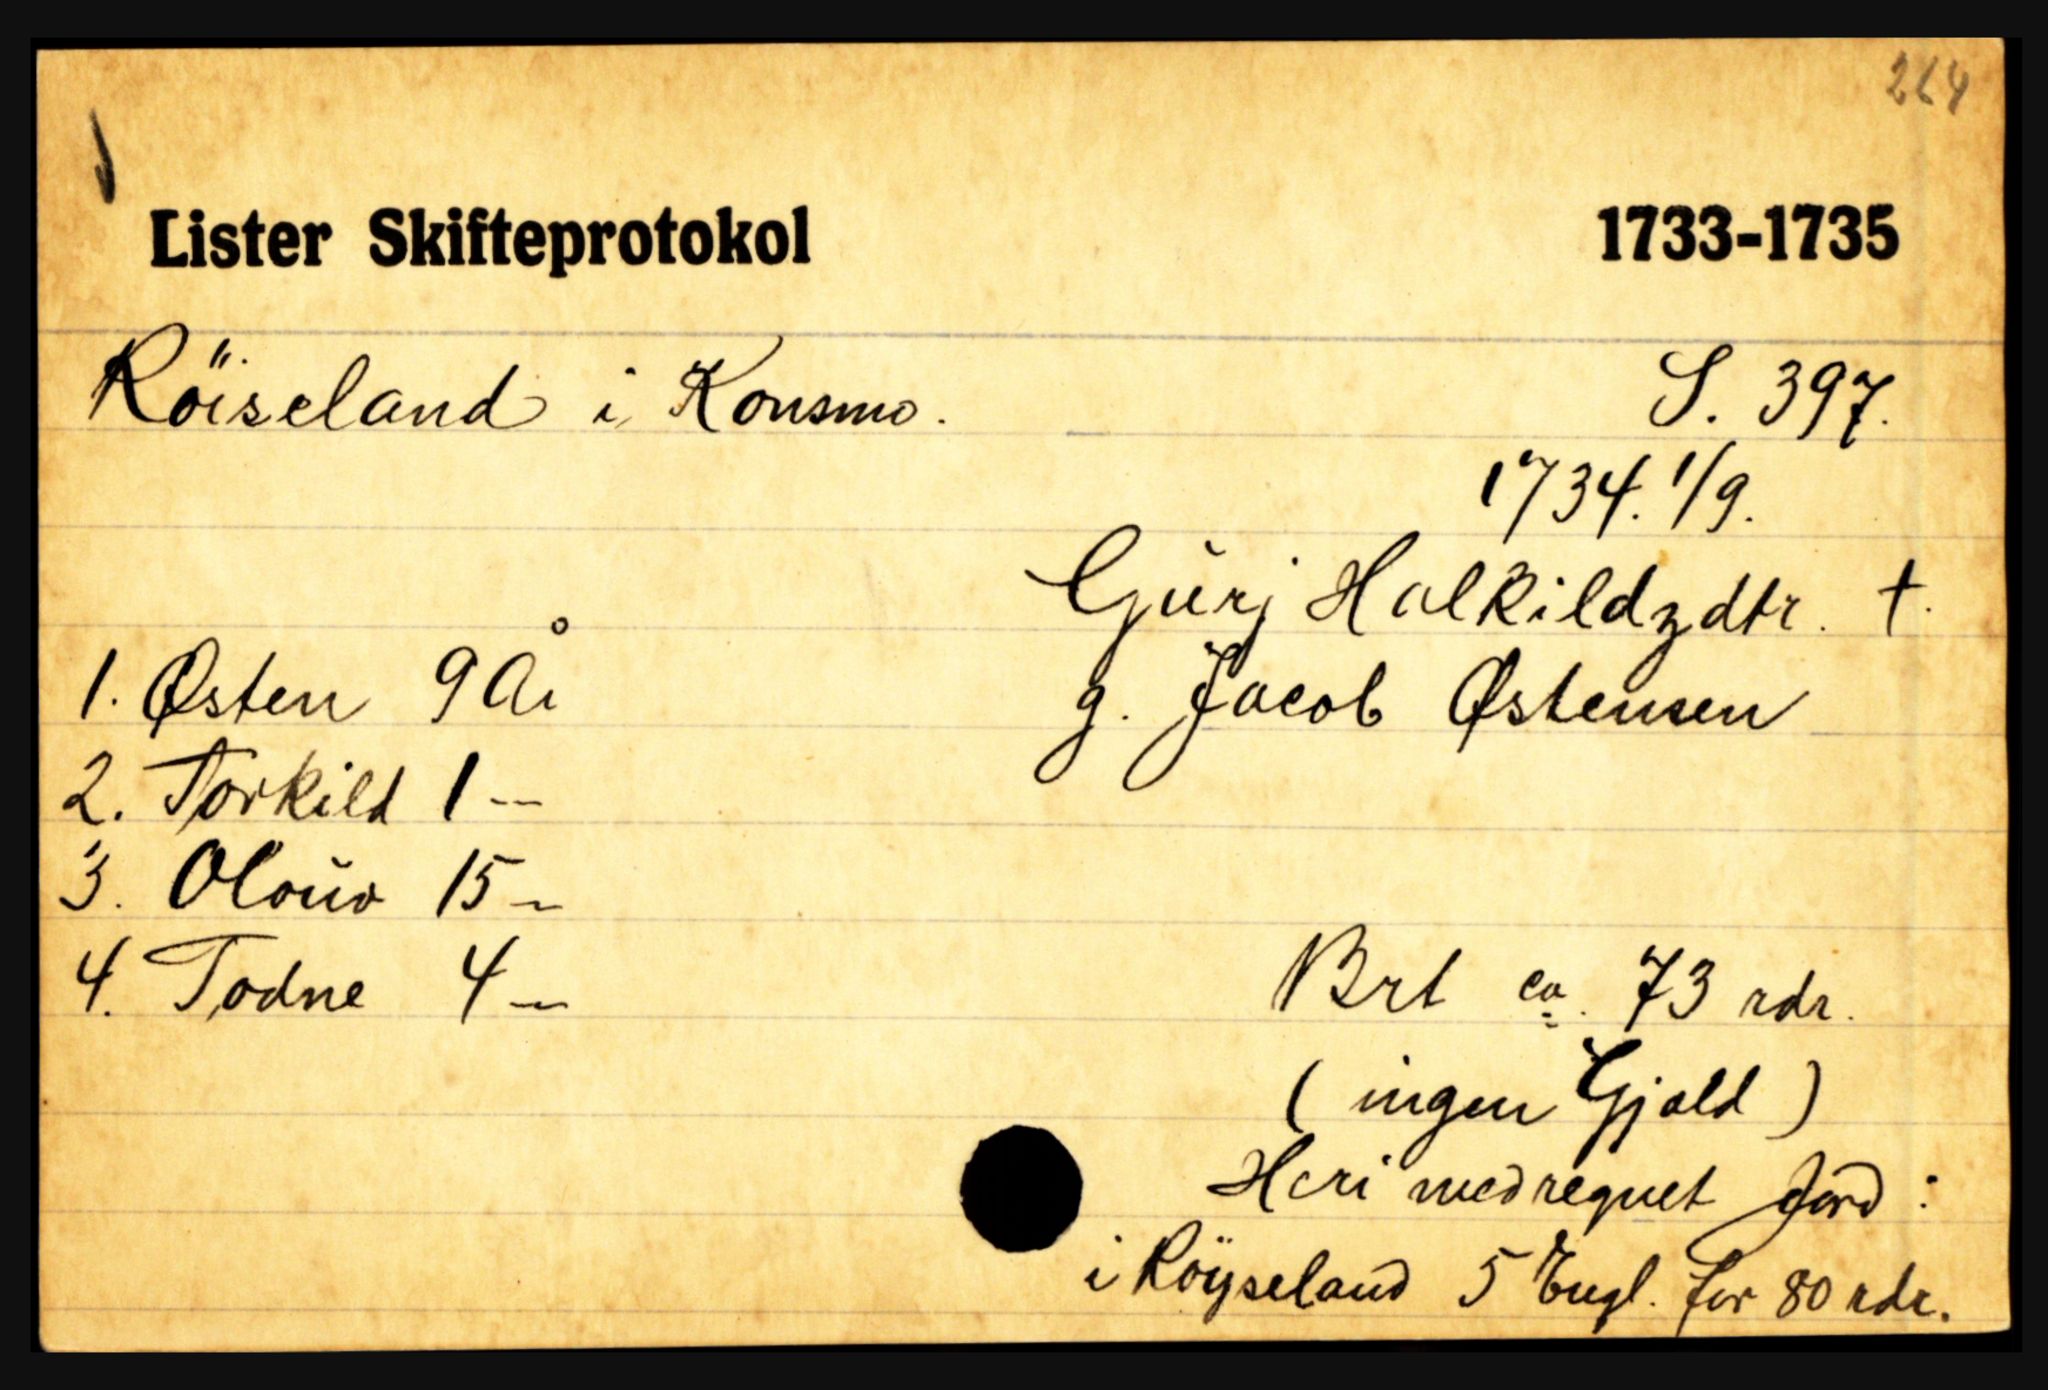 264
Lister Skifteprotokol 1733-1735
Röiseland i Konsmo. S. 397.
1734. 1/9.
Gurj Halkildzdtr. †.
1. Østen 9 År g. Jacob Østensen
2. Torkild 1 —
3. Olouv 15 —
4. Todne 4 — Brt ca. 73 rdr.
( ingen Gjæld )
Heri medregnet Jord :
i Röyseland 5 Engl. for 80 rdr.